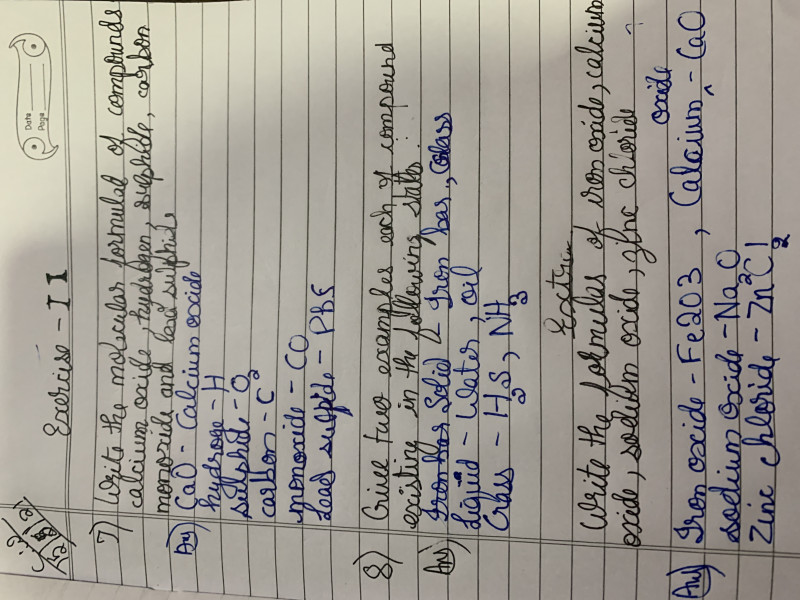 Date
Page
Exercise - II
7) Write the molecular formulae of compounds
calcium oxide, hydrogen, sulphide, carbon
monoxide and lead sulphide
Ans) CaO - Calcium oxide
hydroge - H
sulphde - O
carbon - C2
monoxide - CO
Lead sulpide - PbS
8) Give two examples each of compound
existing in the following states.
Ans) Solid - Iron bar, Glass
Liquid - Water, oil
Glass - H2S, NH3
Extra
Write the formulas of iron oxide, calcium
oxide, sodium oxide, zinc chloride
Ans) Iron oxide - Fe2O3, Calcium oxide - CaO
sodium oxide - Na2O
Zinc chloride - ZnCl2